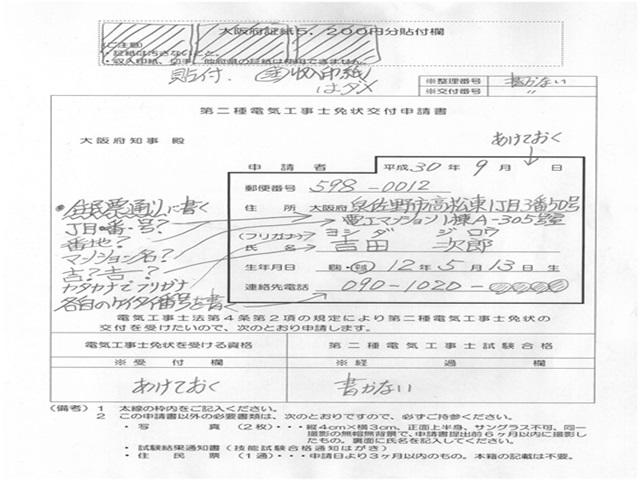 大阪府証紙5,200円分貼付欄
(ご注意)
・証紙は汚さないこと。
・収入印紙、切手、他府県の証紙は使用できません。
貼付. 収入印紙
はダメ
※整理番号 書かない
※交付番号 〃
第二種電気工事士免状交付申請書
大阪府知事 殿
あけておく
申請者 平成30年9月 日
郵便番号 598-0012
住所 大阪府 泉佐野市高松東1丁目3番50号
電工マンション1棟A-305号室
(フリガナ) ヨシダ ジロウ
氏名 吉田 次郎
生年月日 12年5月13日生
連絡先電話 090-1020-
住民票通りに書く
丁目・番・号?
番地?
マンション名?
吉?𠮷?
カタカナでフリガナ
各自のケイタイ番号を書く
電気工事士法第4条第2項の規定により第二種電気工事士免状の
交付を受けたいので、次のとおり申請します。
電気工事士免状を受ける資格 第二種電気工事士試験合格
※受付欄 ※経過欄
あけておく 書かない
(備考) 1 太線の枠内をご記入ください。
2 この申請書以外の必要書類は、次のとおりですので、必ずご持参ください。
・写真 (2枚)・・・縦4cm×横3cm、正面上半身、サングラス不可、同一
撮影の無帽無背景で、申請書提出前6ヶ月以内に撮影し
たもの。裏面に氏名を記入してください。
・試験結果通知書(技能試験合格通知はがき)
・住民票 (1通)・・・申請日より3ヶ月以内のもの。本籍の記載は不要。